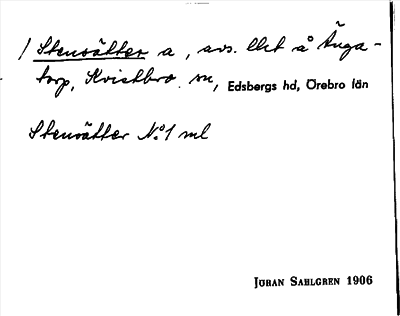 / Stensätter a, avs. lht å Änga-
torp, Kvistbro sn, Edsbergs hd, Örebro län
Stensätter No 1 ml
JÖRAN SAHLGREN 1906